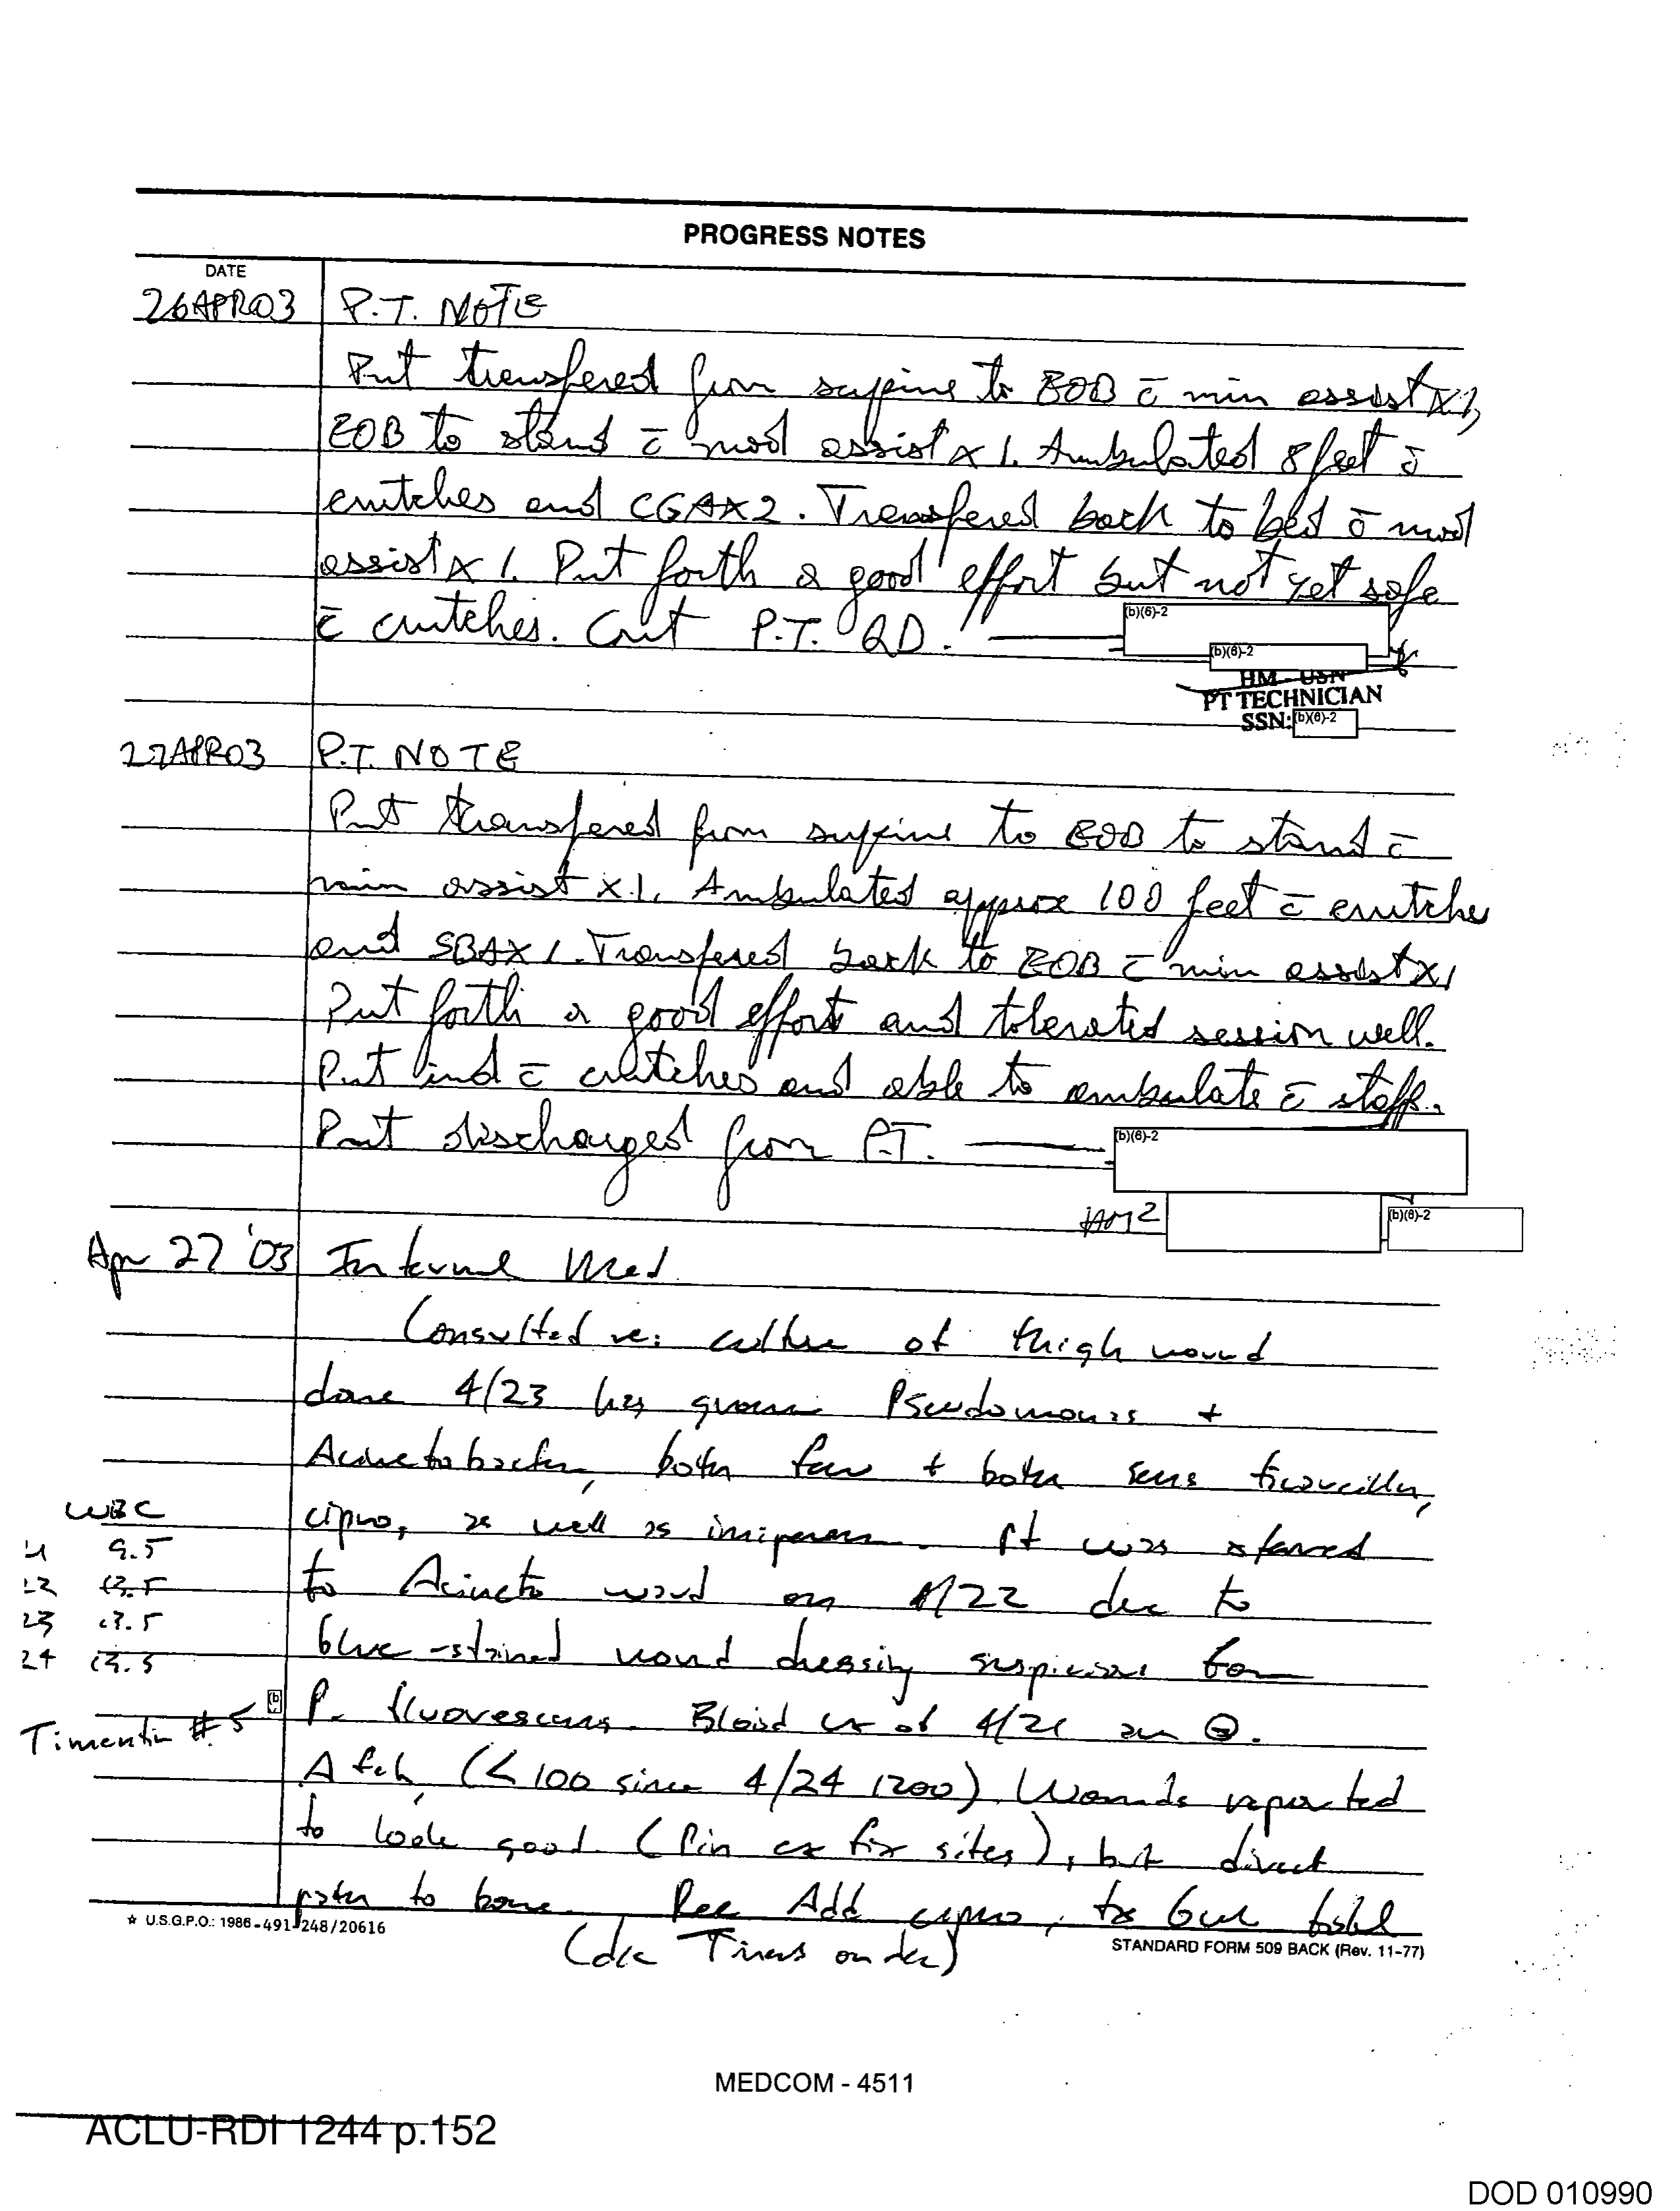 PROGRESS NOTES
DATE
26APR03 P.T. NOTE
Pnt transfered from supine to EOB c̄ min assist x1,
EOB to stand c̄ mod assist x 1. Ambulated 8 feet c̄
crutches and CGAX2. Transfered back to bed c̄ mod
assist x 1. Pnt forth a good effort but not yet safe
(b)(6)-2
c̄ crutches. Cont P.T. QD.
(b)(6)-2
HM - USN
PT TECHNICIAN
SSN: (b)(6)-2
27APR03 P.T. NOTE
Pnt transfered from supine to EOB to stand c̄
min assist x1. Ambulated approx 100 feet c̄ crutches
and SBAX 1. Transfered back to EOB c̄ min assist x1
Put forth a good effort and tolerated session well.
Pnt ind c̄ crutches and able to ambulate c̄ staff.
Pnt discharged from P.T.
(b)(6)-2
HM2 (b)(6)-2
Apr 27 '03 Internal Med
Consulted re: culture of thigh wound
done 4/23 has grown Pseudomonas +
Acinetobacter, both few + both sens ticarcillin,
WBC
cipro, as well as imipenem. Pt was xferred
9.5
to Acineto ward on 4/22 due to
22 13.5
23 13.5
blue-stained wound dressing suspicious for
24
Timentin # 5
P. fluorescens. Blood cx of 4/21 are ⊖.
Afeb (< 100 since 4/24 1200). Wounds reported
to look good (Pin ex fix sites), but direct
path to bone. Rec Add cipro, tx 6wk total
(d/c
☆ U.S.G.P.O.: 1986-491-248/20616
STANDARD FORM 509 BACK (Rev. 11-77)
MEDCOM - 4511
ACLU-RDI 1244 p.152
DOD 010990